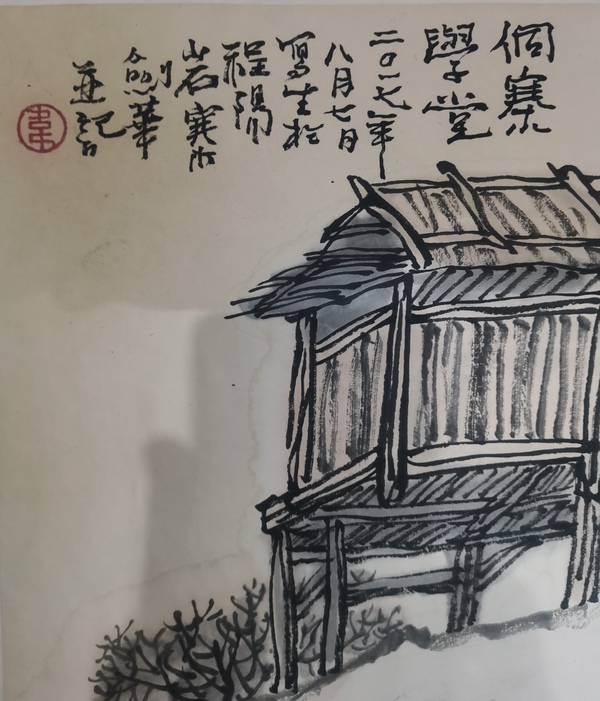 個寨
學堂
二〇一七年
八月七日
寫生於
程陽
岩寨
劍華
並記
韋